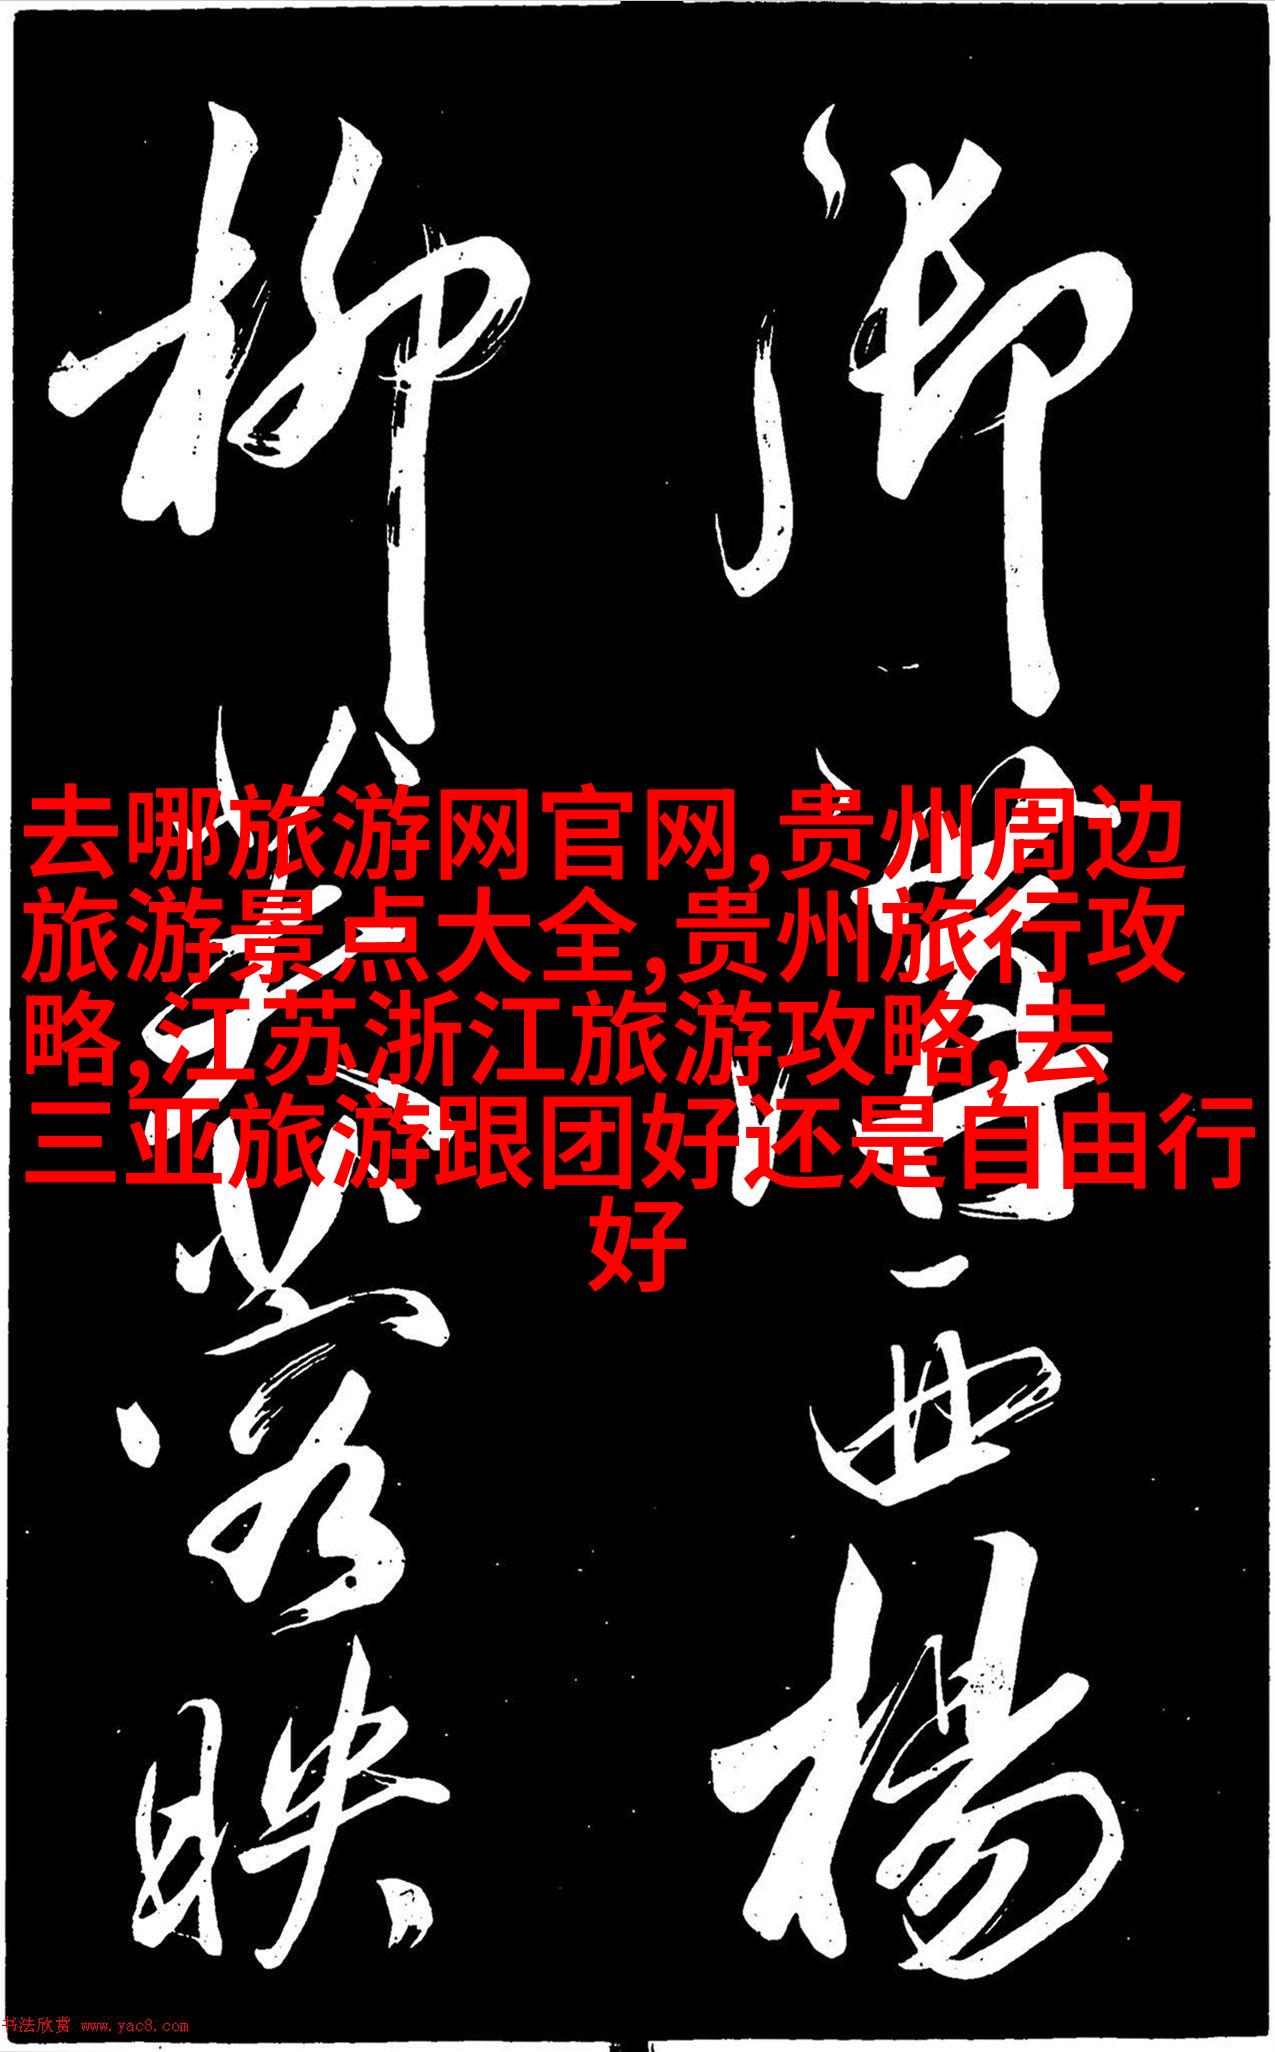 西楊
柳
映
去哪旅游网官网,贵州周边
旅游景点大全,贵州旅行攻
略,江苏浙江旅游攻略,去
三亚旅游跟团好还是自由行
好
书法欣赏 www.yac8.com